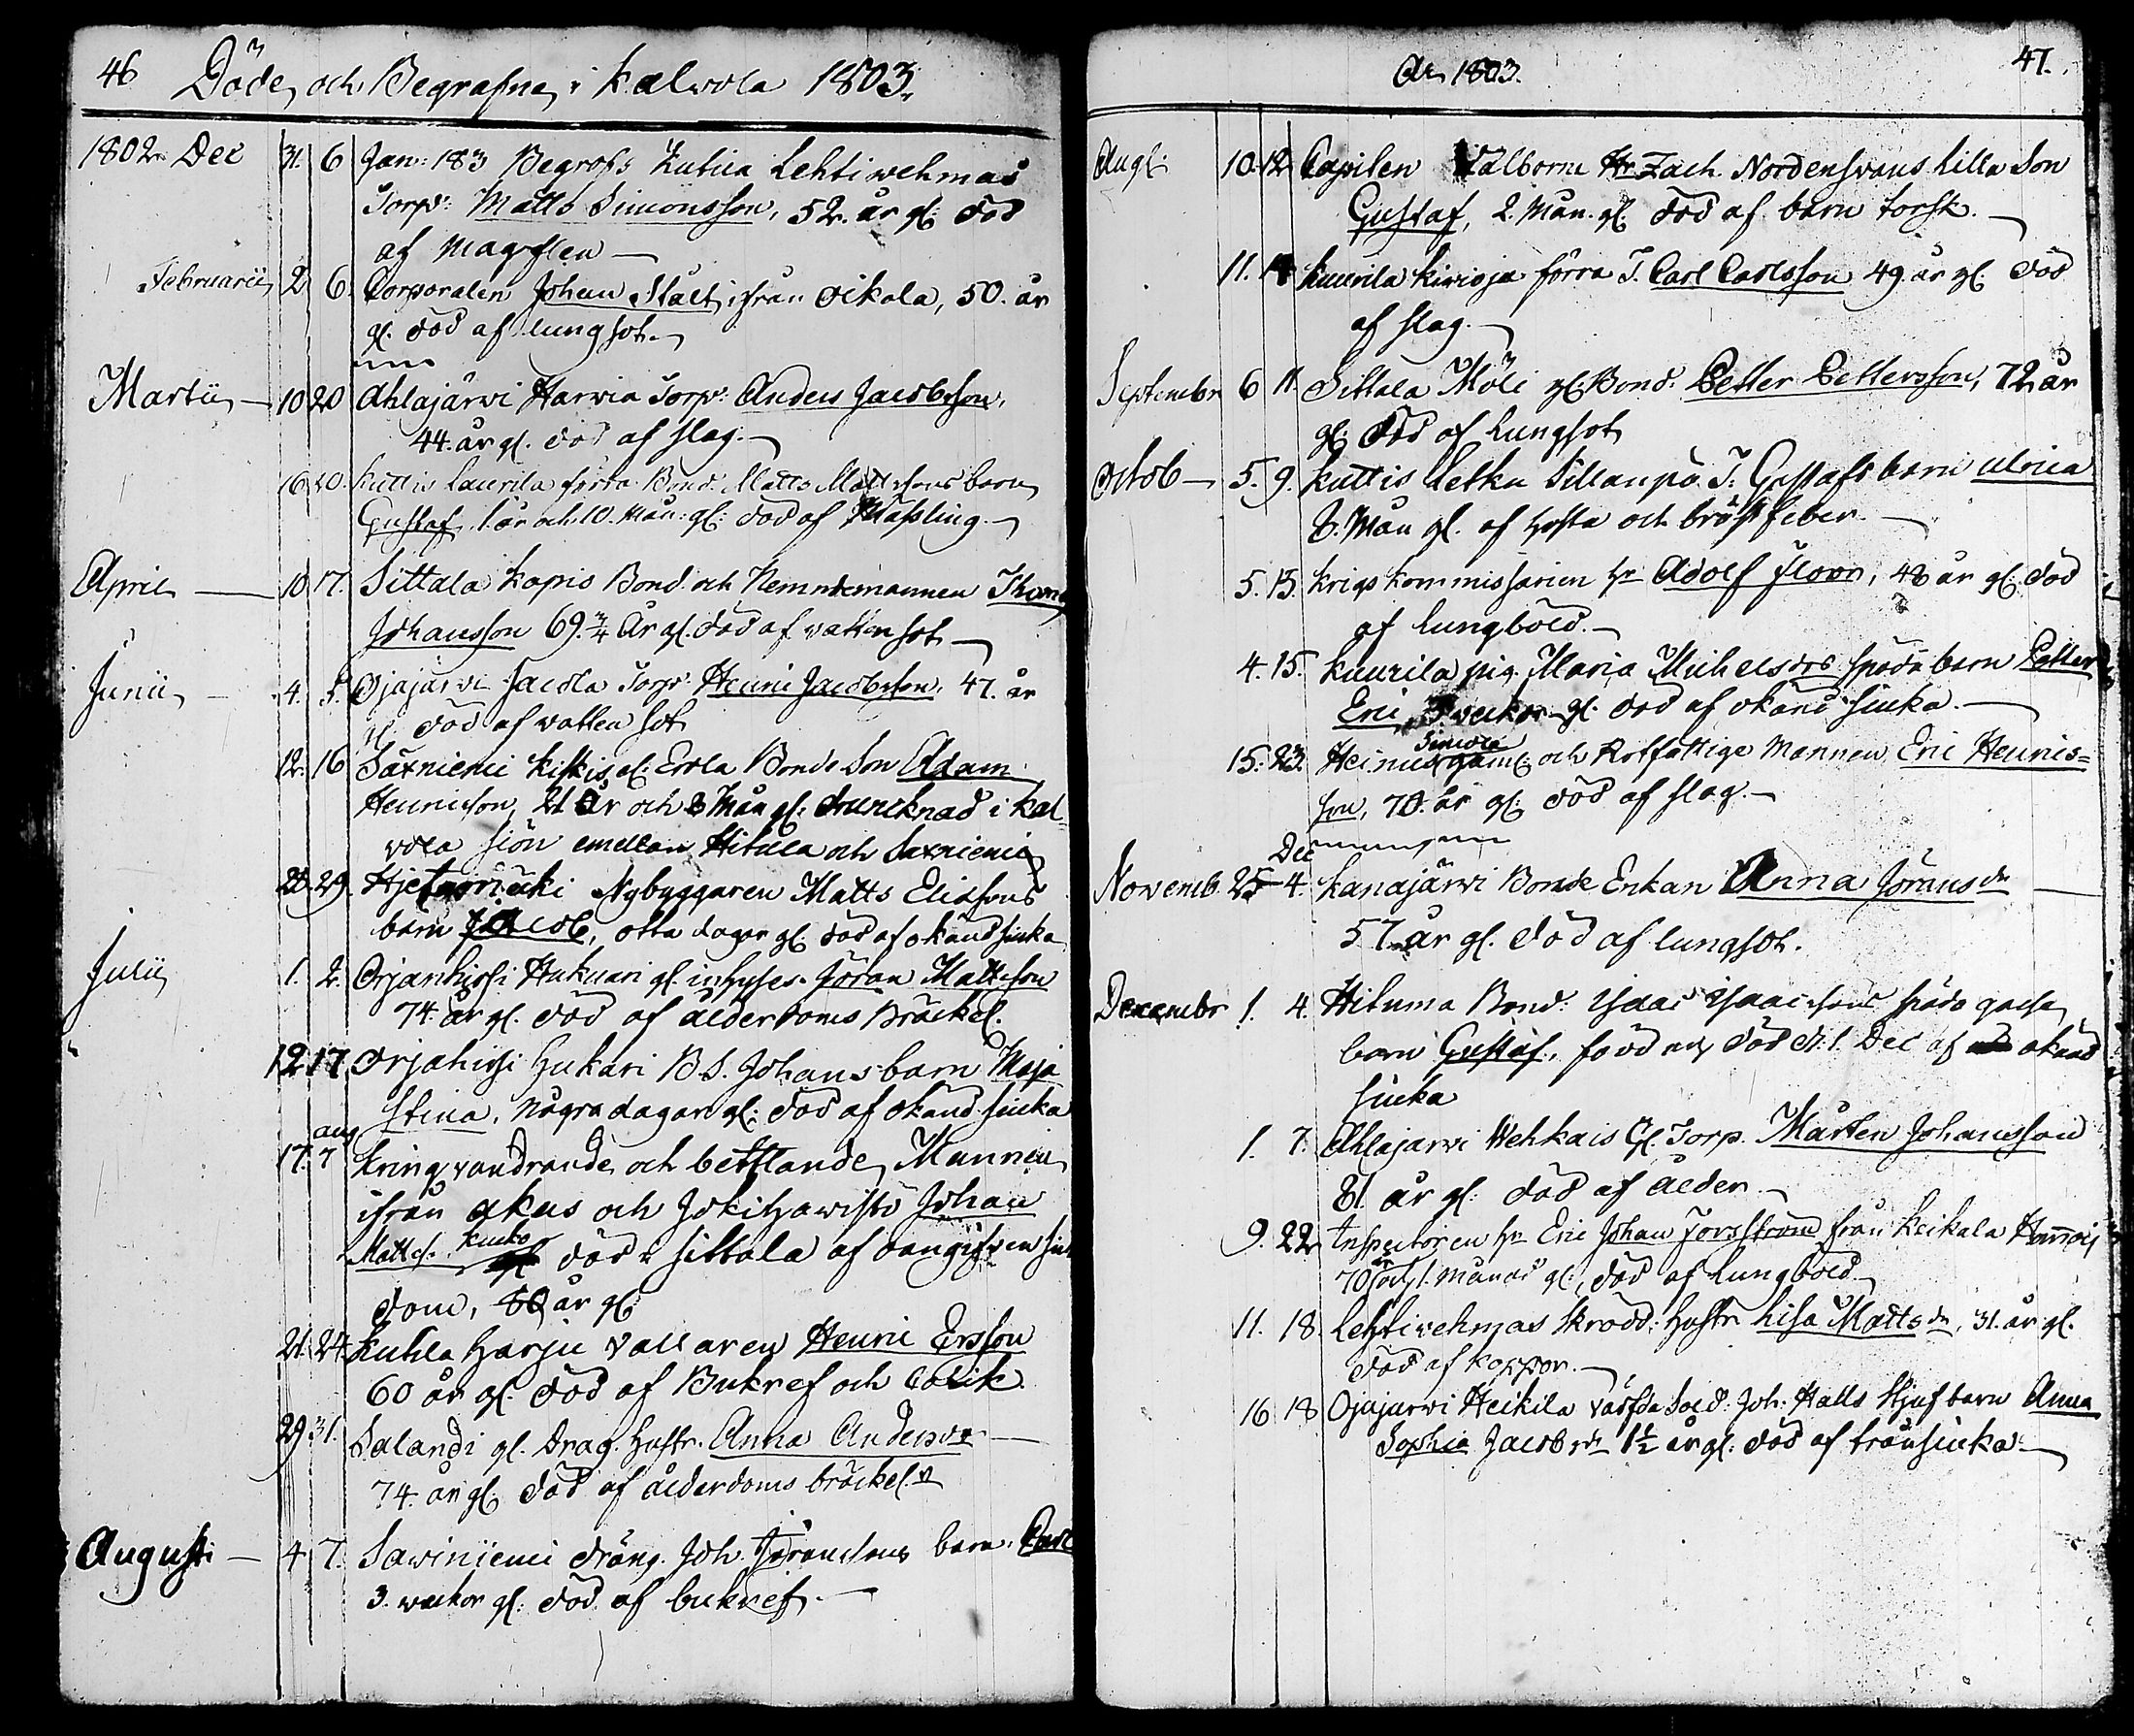 46 Döde och Begrafne i Kalvola 1803.
1802 Dec 31. 6 Jan: 183 Begrofs Lehtiwehmas
Torp: Matts Simonsson, 52. år gl: död
af Magplen
Februarii 2 6. Corporalen Johan Stålt, ifrån Oikola, 50. år
gl. död af lungsot.
Martii 10 20 Ahlajärwi Harwia Torp: Anders Jacobsson,
44. år gl. död af slag.
16 20. Kuttis Laurila förra Bond: Matts Mattssons barn
Gustaf, 1 år och 10. Mån: gl: död af Mässling.
April 10 17. Sittala Kopis Bond. och Nemndemannen Thom
Johansson 69. 3/4 År gl. död af vattensot
Junii 4. 5. Ojajärwi Jacola Torp: Henric Jacobsson, 47. år
gl. död af vatten sot
12. 16 Saxniemi Kiskis gl: Erola Bonde Son Adam
Henricsson, 21 År och 8 Mån gl. druncknad i Kal-
vola siön emellan Hitula och Saxniemi
28. 29. Nybyggaren Matts Eliæsons
barn Jacob, otta dagar gl död af okänd siuka
Julii 1. 2. Orjanhirsi Hukari gl. inhyses. Jöran Mattsson
74. år gl. död af ålderdoms Bräckel.
12 17 Orjahirsi Hukari B. S. Johans barn Maja
Stina, några dagar gl: död af okänd siuka
aug
17. 7 Kringvandrande och bettlande Mannen
ifrån Akas och Jokihawisto Johan
Mattss. Kucko död i Sittala af oangifven siuk
dom, 80 år gl:
21. 24 Kuhla Harju Vallaren Henric Ersson
60 år gl. död af Bukref och Colik
29 31. Salandi gl. Drag. Hustr. Anna Andersdr
74. år gl. död af ålderdoms bräckel.
Augusti 4 7. Sawiniemi dräng. Joh. Jöranssons barn. Carl
3. weckor gl: död af bukref.
År 1803. 47.
Augl. 10. 12 Capiten Välborne Hr Zach. Nordensvans lilla Son
Gustaf, 2. Mån. gl. död af barn torsk.
11. 14 Kuurila Kiwioja förra T. Carl Carlsson 49. år gl. död
af slag.
September 6 11. Sittala Möli gl: Bond. Petter Pettersson, 72 år
gl: död af lungsot
Octob 5. 9. Kuttis Ketku Sillanpä T. Gustafs barn Ulrica
8. Mån gl. af hosta och bröstfeber.
5. 15. Krigs Kommissarien Hr Adolf Floor, 48 år gl. död
af lungböld.
4. 15. Kuurila pig. Maria Michelsdrs späda barn Petter
Eric, weckor gl. död af okänd siuka.
Simola
15. 23. Heinus gaml: och Rotfattige Mannen Eric Henrics=
son, 70. år gl: död af slag.
Dec
Novemb. 25 4. Kanajärwi Bonde Enkan Anna Jöransdr
57 år gl. död af lungsot.
December 1. 4. Hituma Bond: Isaac Isaacssons späda gosse
barn Gustaf, född och död d. 1. Dec af okänd
siuka
1. 7. Ahlajarwi Wehkais Gl. Torp. Mårten Johansson
81 år gl: död af ålder.
9. 22 Inspectoren Hr Eric Johan Forsström från Keikala
70 år och 1. Månad gl:, död af lungböld
11. 18. Lehtiwehmas Skrädd: Hustr Lisa Mattsdr, 31. år gl.
död af koppor.
16 18 Ojajarwi Heikila värfda Sold. Joh. Halls Stjuf barn Anna
Sophia Jacobsdr 1 1/2 år gl: död af tränsiuka